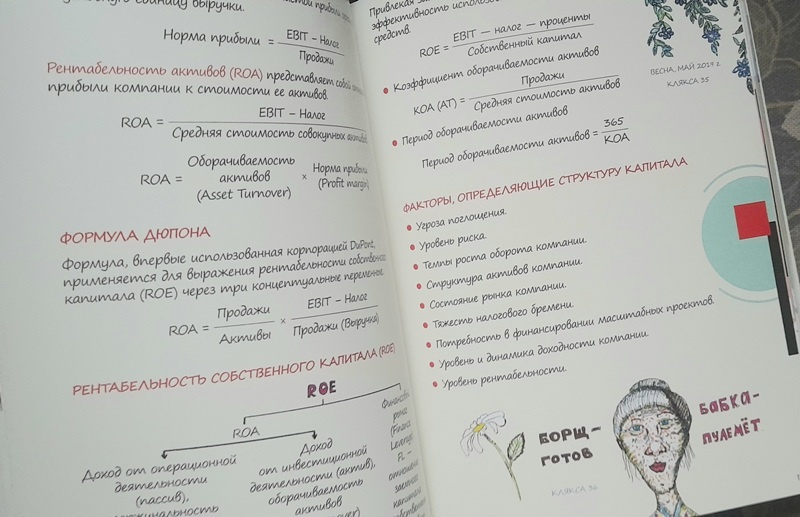 единицу выручки.
Норма прибыли = EBIT – Налог / Продажи
Рентабельность активов (ROA) представляет собой
прибыли компании к стоимости ее активов.
ROA = EBIT – Налог / Средняя стоимость совокупных активов
ROA = Оборачиваемость активов (Asset Turnover) × Норма прибыли (Profit margin)
ФОРМУЛА ДЮПОНА
Формула, впервые использованная корпорацией DuPont,
применяется для выражения рентабельности собственного
капитала (ROE) через три концептуальные переменные.
ROA = Продажи / Активы × EBIT – Налог / Продажи (Выручка)
РЕНТАБЕЛЬНОСТЬ СОБСТВЕННОГО КАПИТАЛА (ROE)
ROE
ROA
Доход от операционной
деятельности
(пассив),
Доход
от инвестиционной
деятельности (актив),
оборачиваемость
активов
эффективность
средств.
ROE = EBIT – налог – проценты / Собственный капитал
• Коэффициент оборачиваемости активов
КОА (АТ) = Продажи / Средняя стоимость активов
• Период оборачиваемости активов
Период оборачиваемости активов = 365 / КОА
ВЕСНА, МАЙ 2019 г.
КЛЯКСА 35
ФАКТОРЫ, ОПРЕДЕЛЯЮЩИЕ СТРУКТУРУ КАПИТАЛА
• Угроза поглощения.
• Уровень риска.
• Темпы роста оборота компании.
• Структура активов компании.
• Состояние рынка компании.
• Тяжесть налогового бремени.
• Потребность в финансировании масштабных проектов.
• Уровень и динамика доходности компании.
• Уровень рентабельности.
БОРЩ-
ГОТОВ
КЛЯКСА 36
БАБКА-
ПУЛЕМЁТ